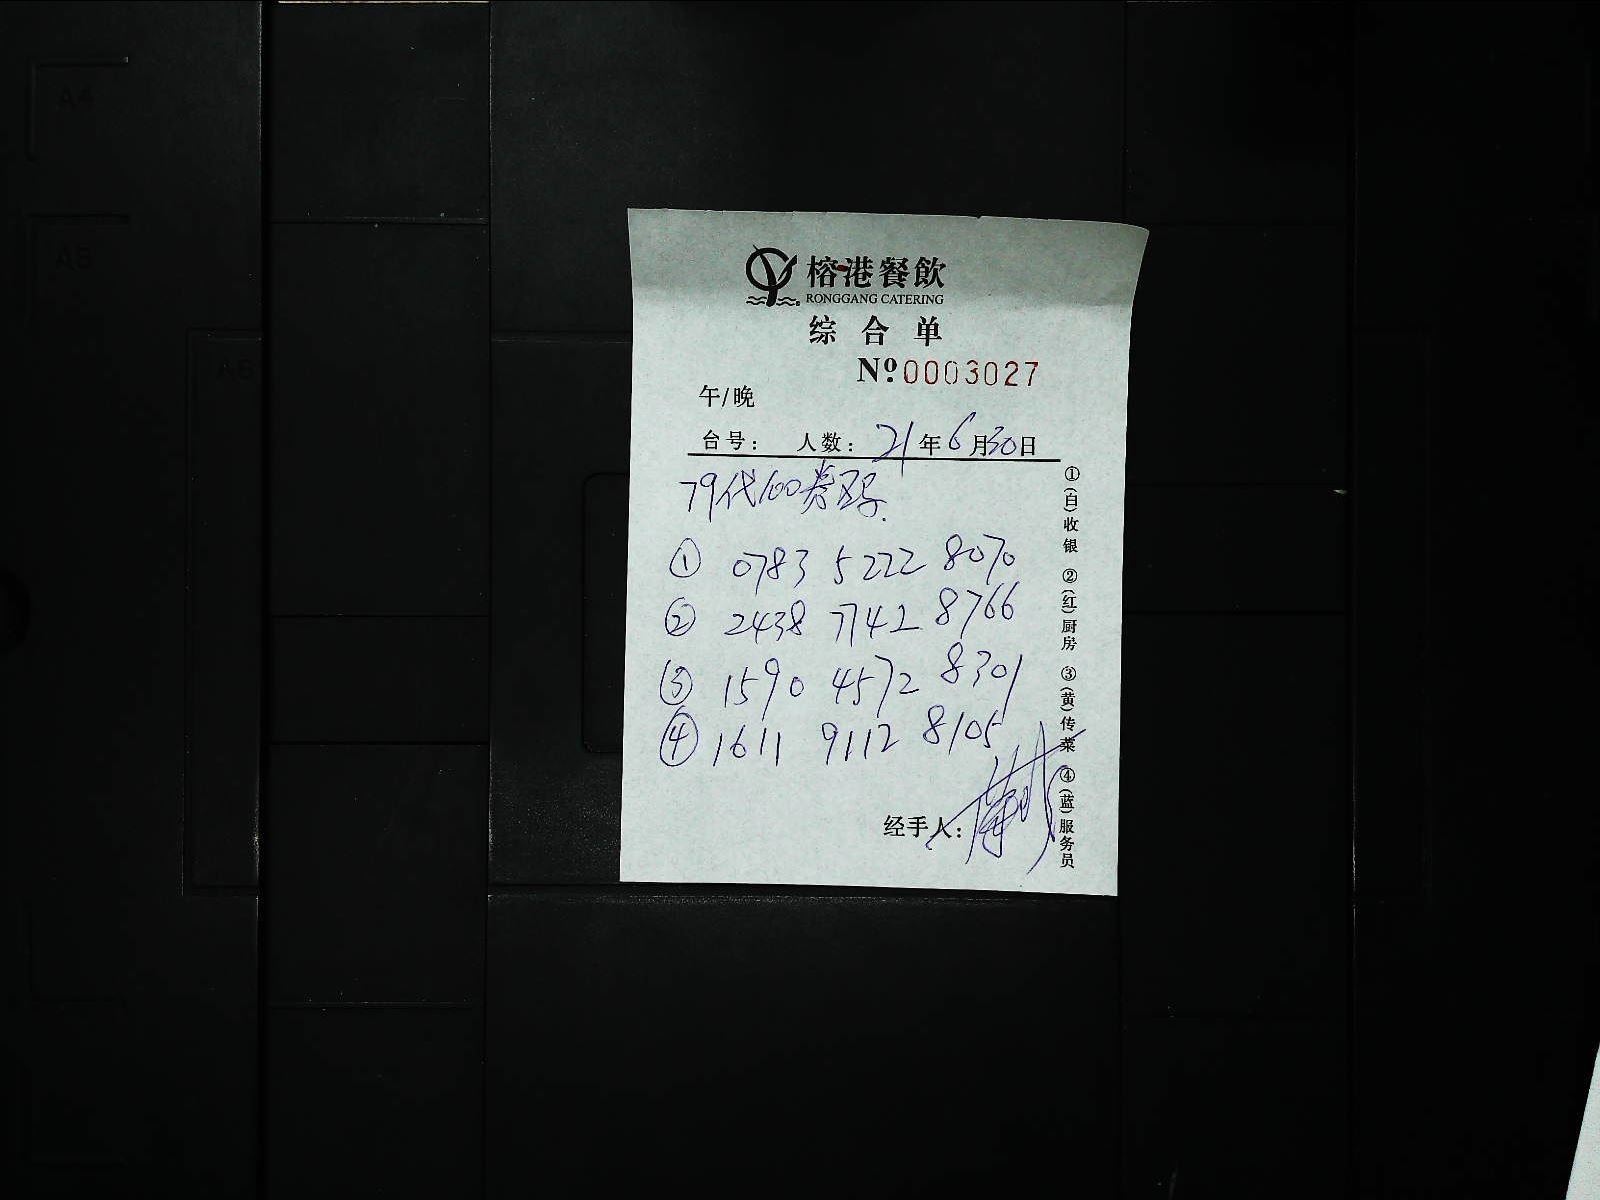 榕港餐飲
RONGGANG CATERING
综合单
Nº0003027
午/晚
台号: 人数: 21年6月30日
79代100券号码
① 0783 5222 8070
② 2438 7742 8766
③ 1590 4572 8301
④ 1611 9112 8105
经手人:
①(白)收银 ②(红)厨房 ③(黄)传菜 ④(蓝)服务员
A4
A5
A6